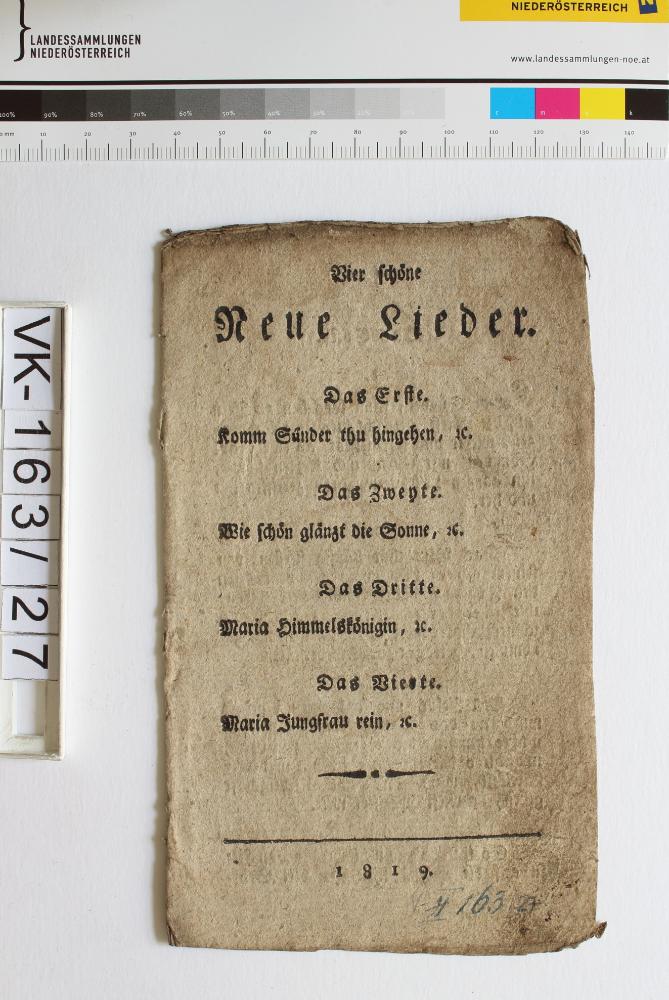 NIEDERÖSTERREICH
LANDESSAMMLUNGEN
NIEDERÖSTERREICH
www.landessammlungen-noe.at
100% 90% 80% 70% 60% 50% 40% 30% 20% 10% c m y k
0 mm 10 20 30 40 50 60 70 80 90 100 110 120 130 140
VK-163/27
Vier schöne
Neue Lieder.
Das Erste.
Komm Sünder thu hingehen, ꝛc.
Das Zweyte.
Wie schön glänzt die Sonne, ꝛc.
Das Dritte.
Maria Himmelskönigin, ꝛc.
Das Vierte.
Maria Jungfrau rein, ꝛc.
1819.
163